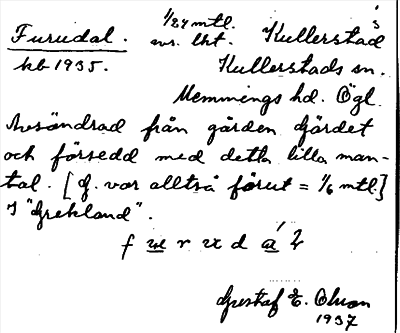 Furudal. 1/24 mtl. Kullerstad
kb 1935. Kullerstads sn.
Memmings hd. Ögl.
Avsöndrad från gården Gärdet
och försedd med detta lilla man-
tal. [G. var alltså förut = 1/6 mtl.]
I "Grekland".
f r d
Gustaf E. Olson
1937